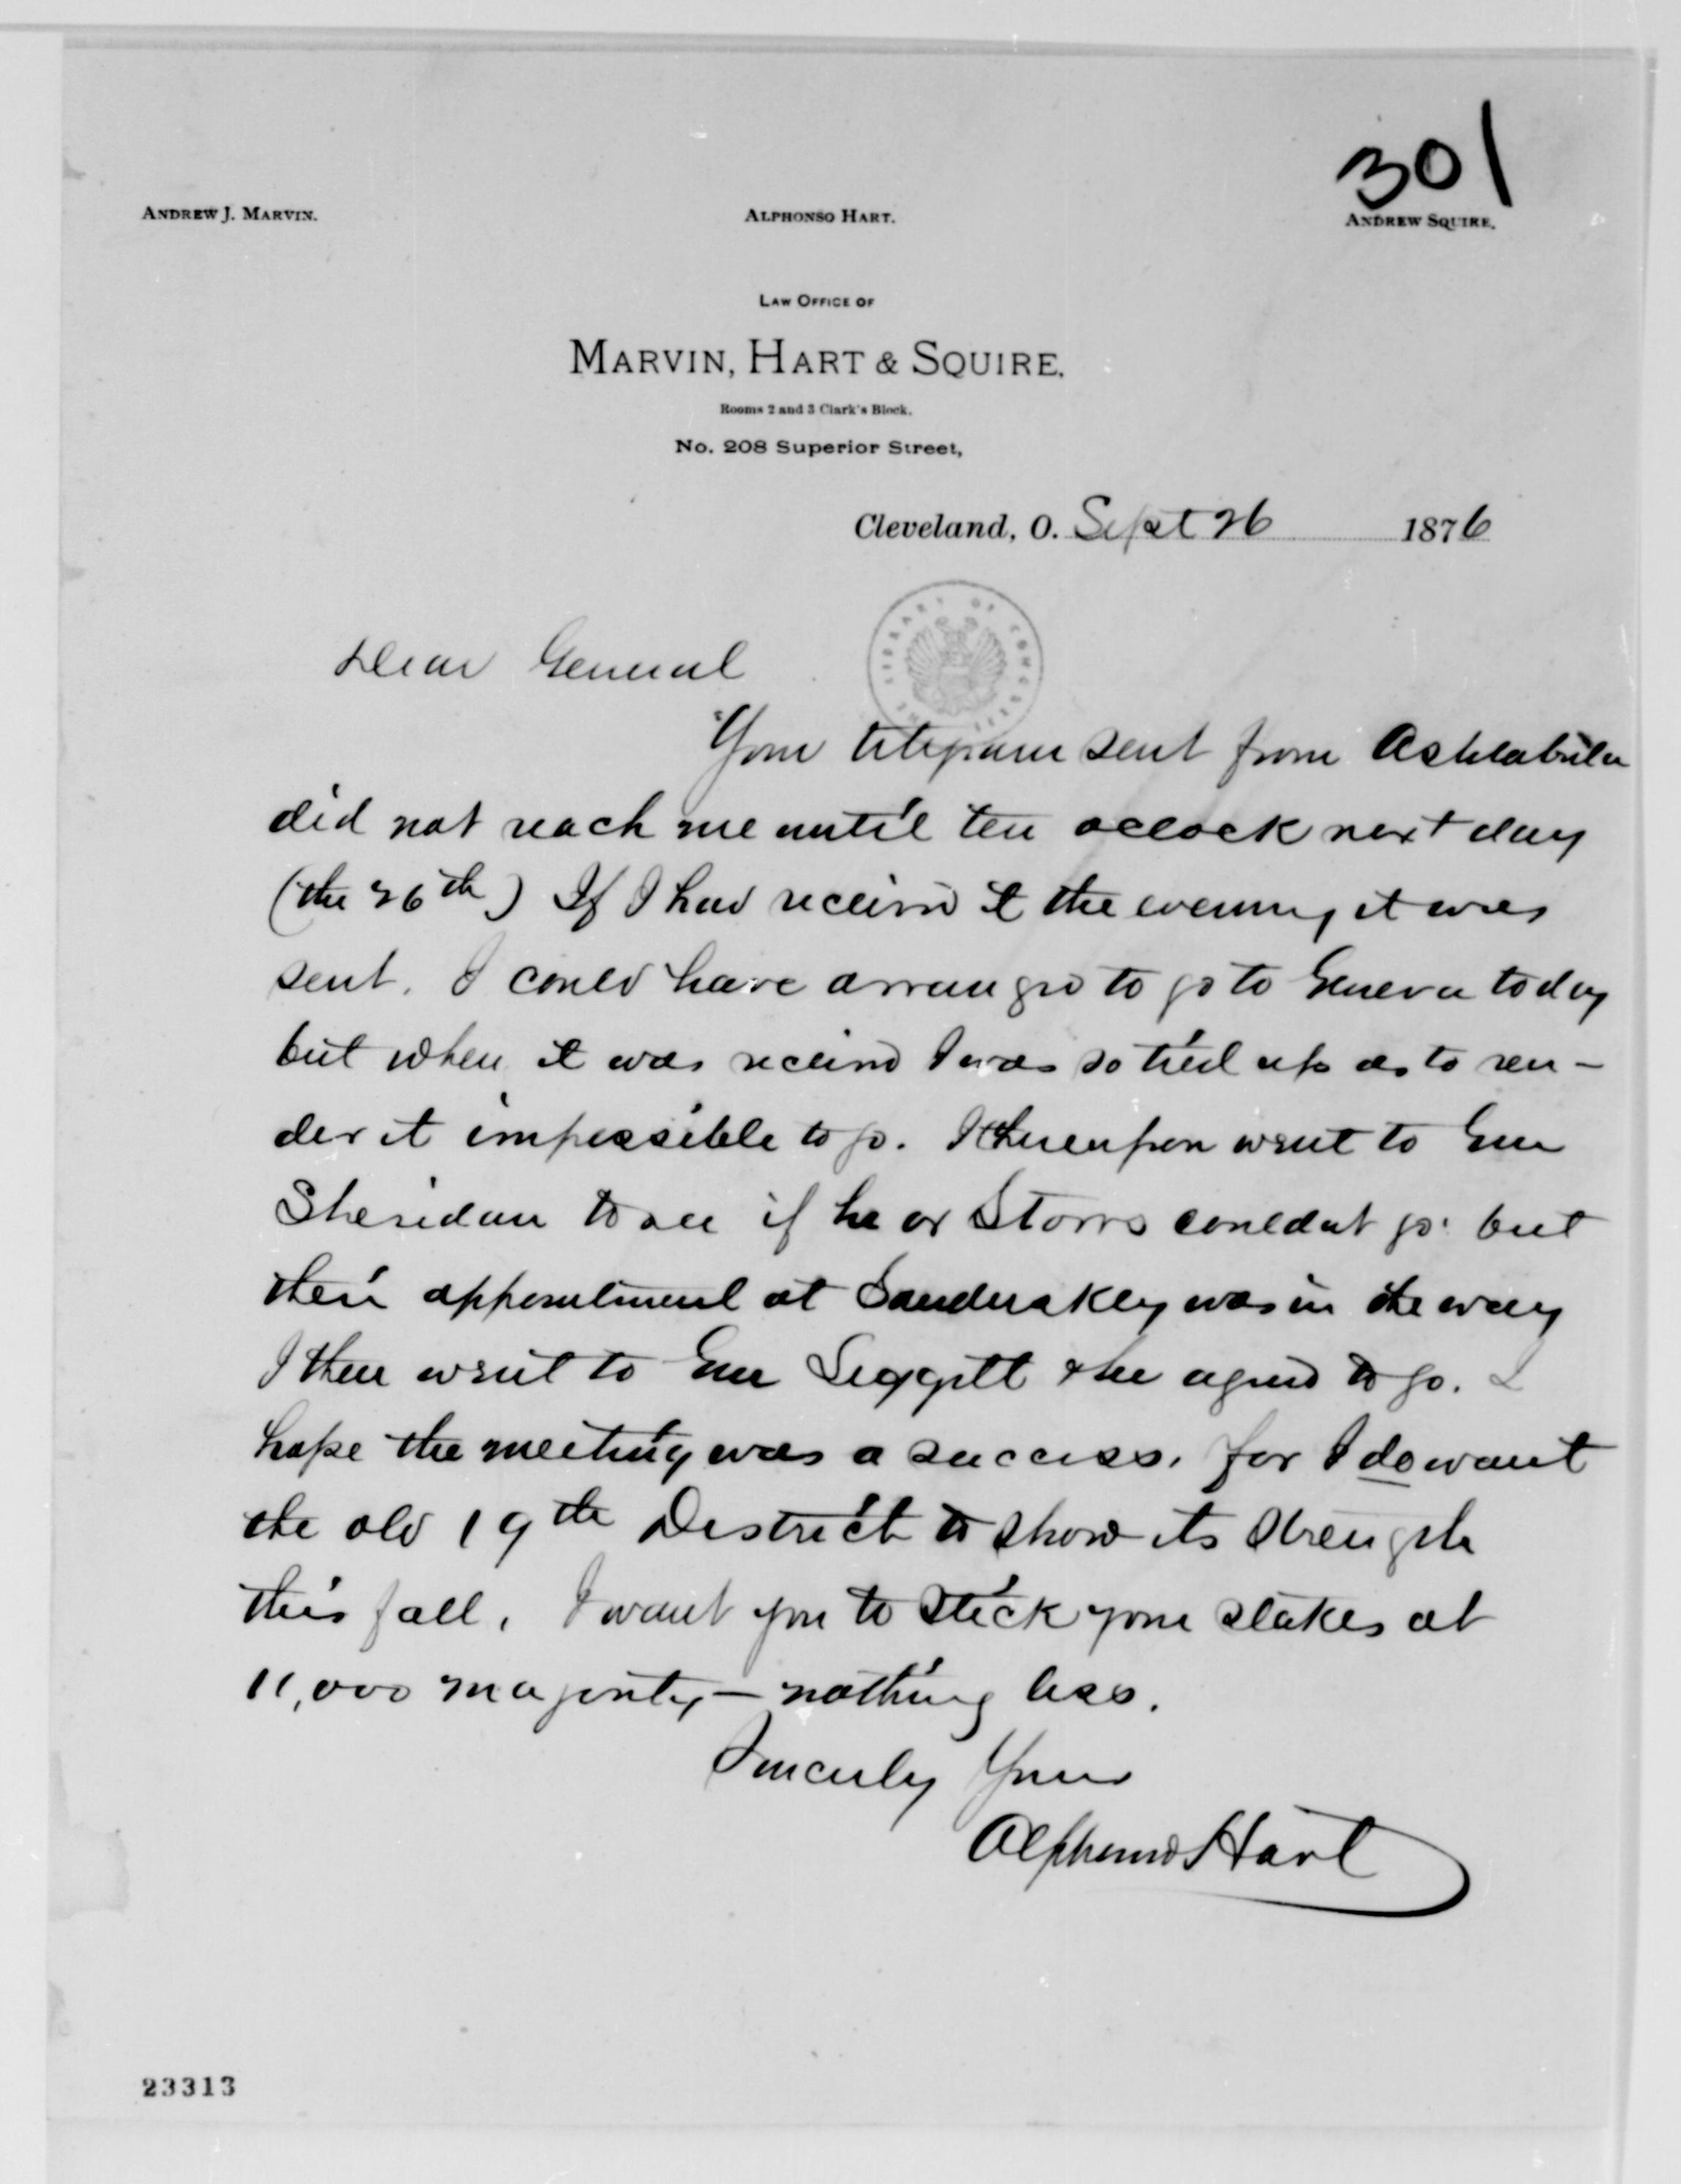 301
ANDREW J. MARVIN. ALPHONSO HART. ANDREW SQUIRE.
LAW OFFICE OF
MARVIN, HART & SQUIRE.
Rooms 2 and 3 Clark's Block.
No. 208 Superior Street,
Cleveland, O. Sept 26 1876
LIBRARY OF CONGRESS
Dear General
Your telegram sent from Ashtabula
did not reach me until ten oclock next day
(the 26th) If I had received it the evening it was
sent. I could have arranged to go to Geneva today
but when it was received I was so tied up as to ren-
der it impossible to go. I thereupon went to Gen
Sheridan to see if he or Storrs couldnt go. but
their appointment at Sandusky was in the way
I then went to Gen Leggett & he agreed to go. I
hope the meeting was a success. for I do want
the old 19th District to show its strength
this fall. I want you to stick your stakes at
11,000 majority — nothing less.
Sincerely Yours
Alphonso Hart
23313